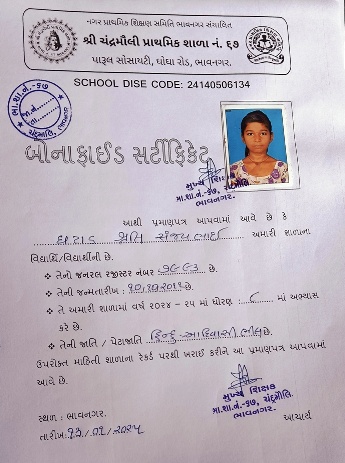 નગર પ્રાથમિક શિક્ષણ સમિતિ ભાવનગર સંચાલિત
શ્રી ચંદ્રમૌલી પ્રાથમિક શાળા નં. ૬૭
પારૂલ સોસાયટી, ઘોઘા રોડ, ભાવનગર.
SCHOOL DISE CODE: 24140506134
બોનાફાઈડ સર્ટીફિકેટ
મુખ્ય શિક્ષક
પ્રા.શા.નં.-૬૭, ચંદ્રમૌલિ
ભાવનગર.
આથી પ્રમાણપત્ર આપવામાં આવે છે કે
સંજયભાઈ અમારી શાળાના
વિદ્યાર્થિ/વિદ્યાર્થીની છે.
તેનો જનરલ રજીસ્ટર નંબર છે.
તેની જન્મતારીખ : છે.
તે અમારી શાળામાં વર્ષ ૨૦૨૪ - ૨૫ માં ધોરણ : ૮ માં અભ્યાસ
કરે છે.
તેની જાતિ / પેટાજાતિ હિન્દુ-આદિવાસી ભીલ છે.
ઉપરોક્ત માહિતી શાળાના રેકર્ડ પરથી ખરાઈ કરીને આ પ્રમાણપત્ર આપવામાં
આવે છે.
મુખ્ય શિક્ષક
પ્રા.શા.નં.-૬૭, ચંદ્રમૌલિ
ભાવનગર.
સ્થળ : ભાવનગર.
આચાર્ય
તારીખ: